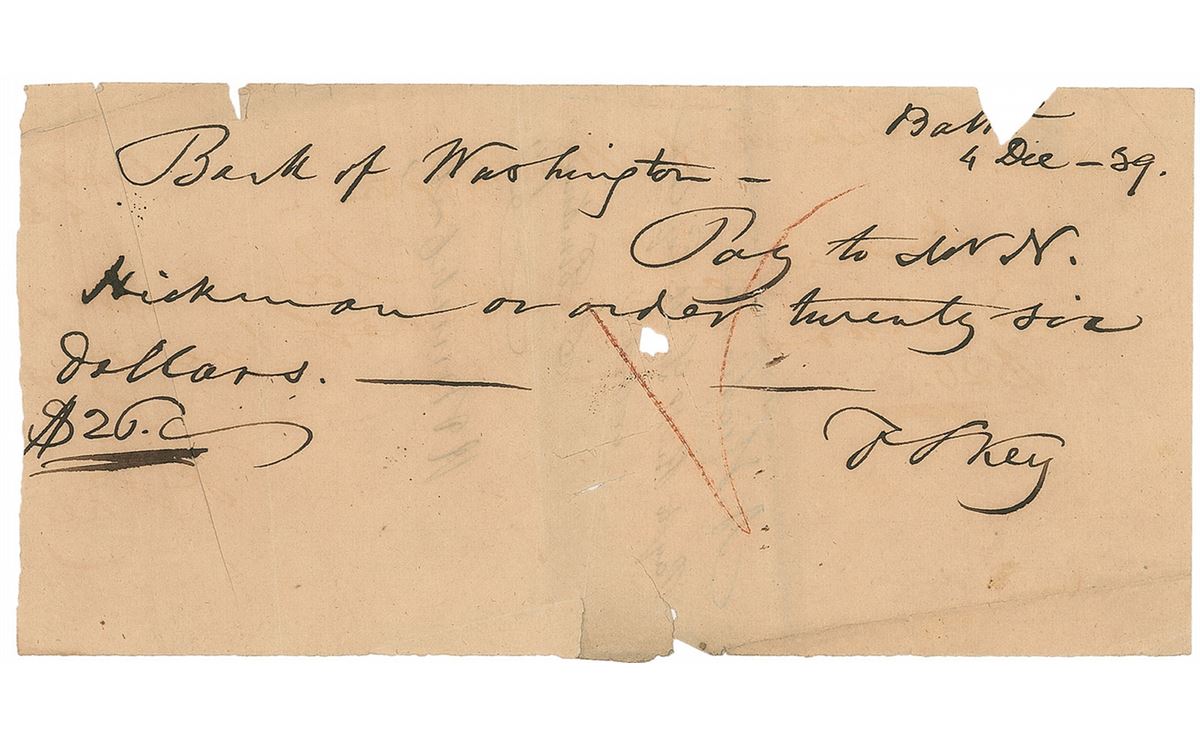 Balt
4 Dec - 39.
Bank of Washington -
Pay to N.
Hickman or order twenty six
dollars.
$26.
F S Key